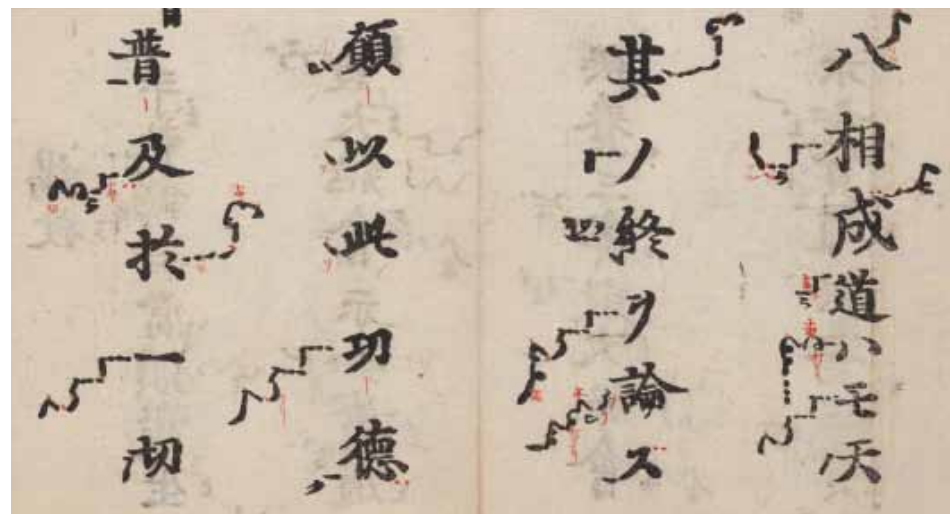 八相成道ハモ天
其ノ終ヲ論ス
願以此功德
普及於一切